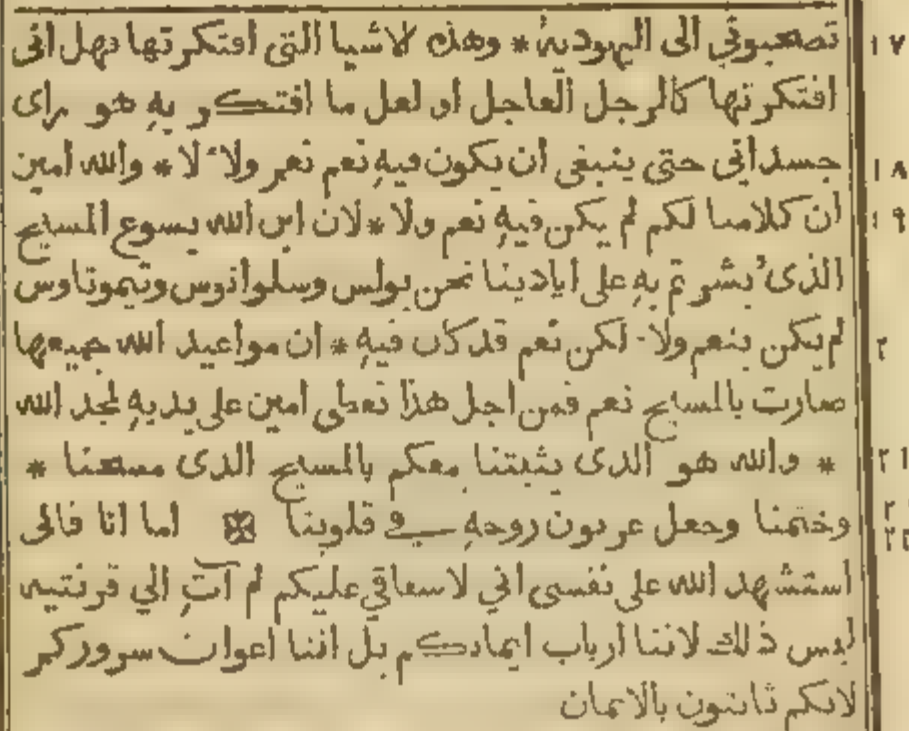 تصحبوني الى اليهودية * وهذه لاشيا التى افتكرتها فهل انى ١٧
افتكرتها كالرجل العاجل او لعل ما افتكر به هو راى
جسدانى حتى ينبغى ان يكون فيه نعم نعم ولا لا * والله امين ١٨
ان كلامنا لكم لم يكن فيه نعم ولا * لان ابن الله يسوع المسيح ١٩
الذى بُشر تم به على ايادينا نحن بولس وسلوانوس وتيموتاوس
لم يكن بنعم ولا لكن نعم قد كان فيه * ان مواعيد الله جميعها ٢
صارت بالمسيح نعم فمن اجل هذا نعطى امين على يديه لمجد الله
* والله هو الذى يثبتنا معكم بالمسيح الذى مسحنا * ٢١
وختمنا وجعل عربون روحه في قلوبنا اما انا فانى ٢
استشهد الله على نفسى اني لاسفاقي عليكم لم آتِ الي قرنتيه
ليس ذلك لاننا ارباب ايمانكم بل اننا اعوان سروركم
لانكم ثابتون بالايمان